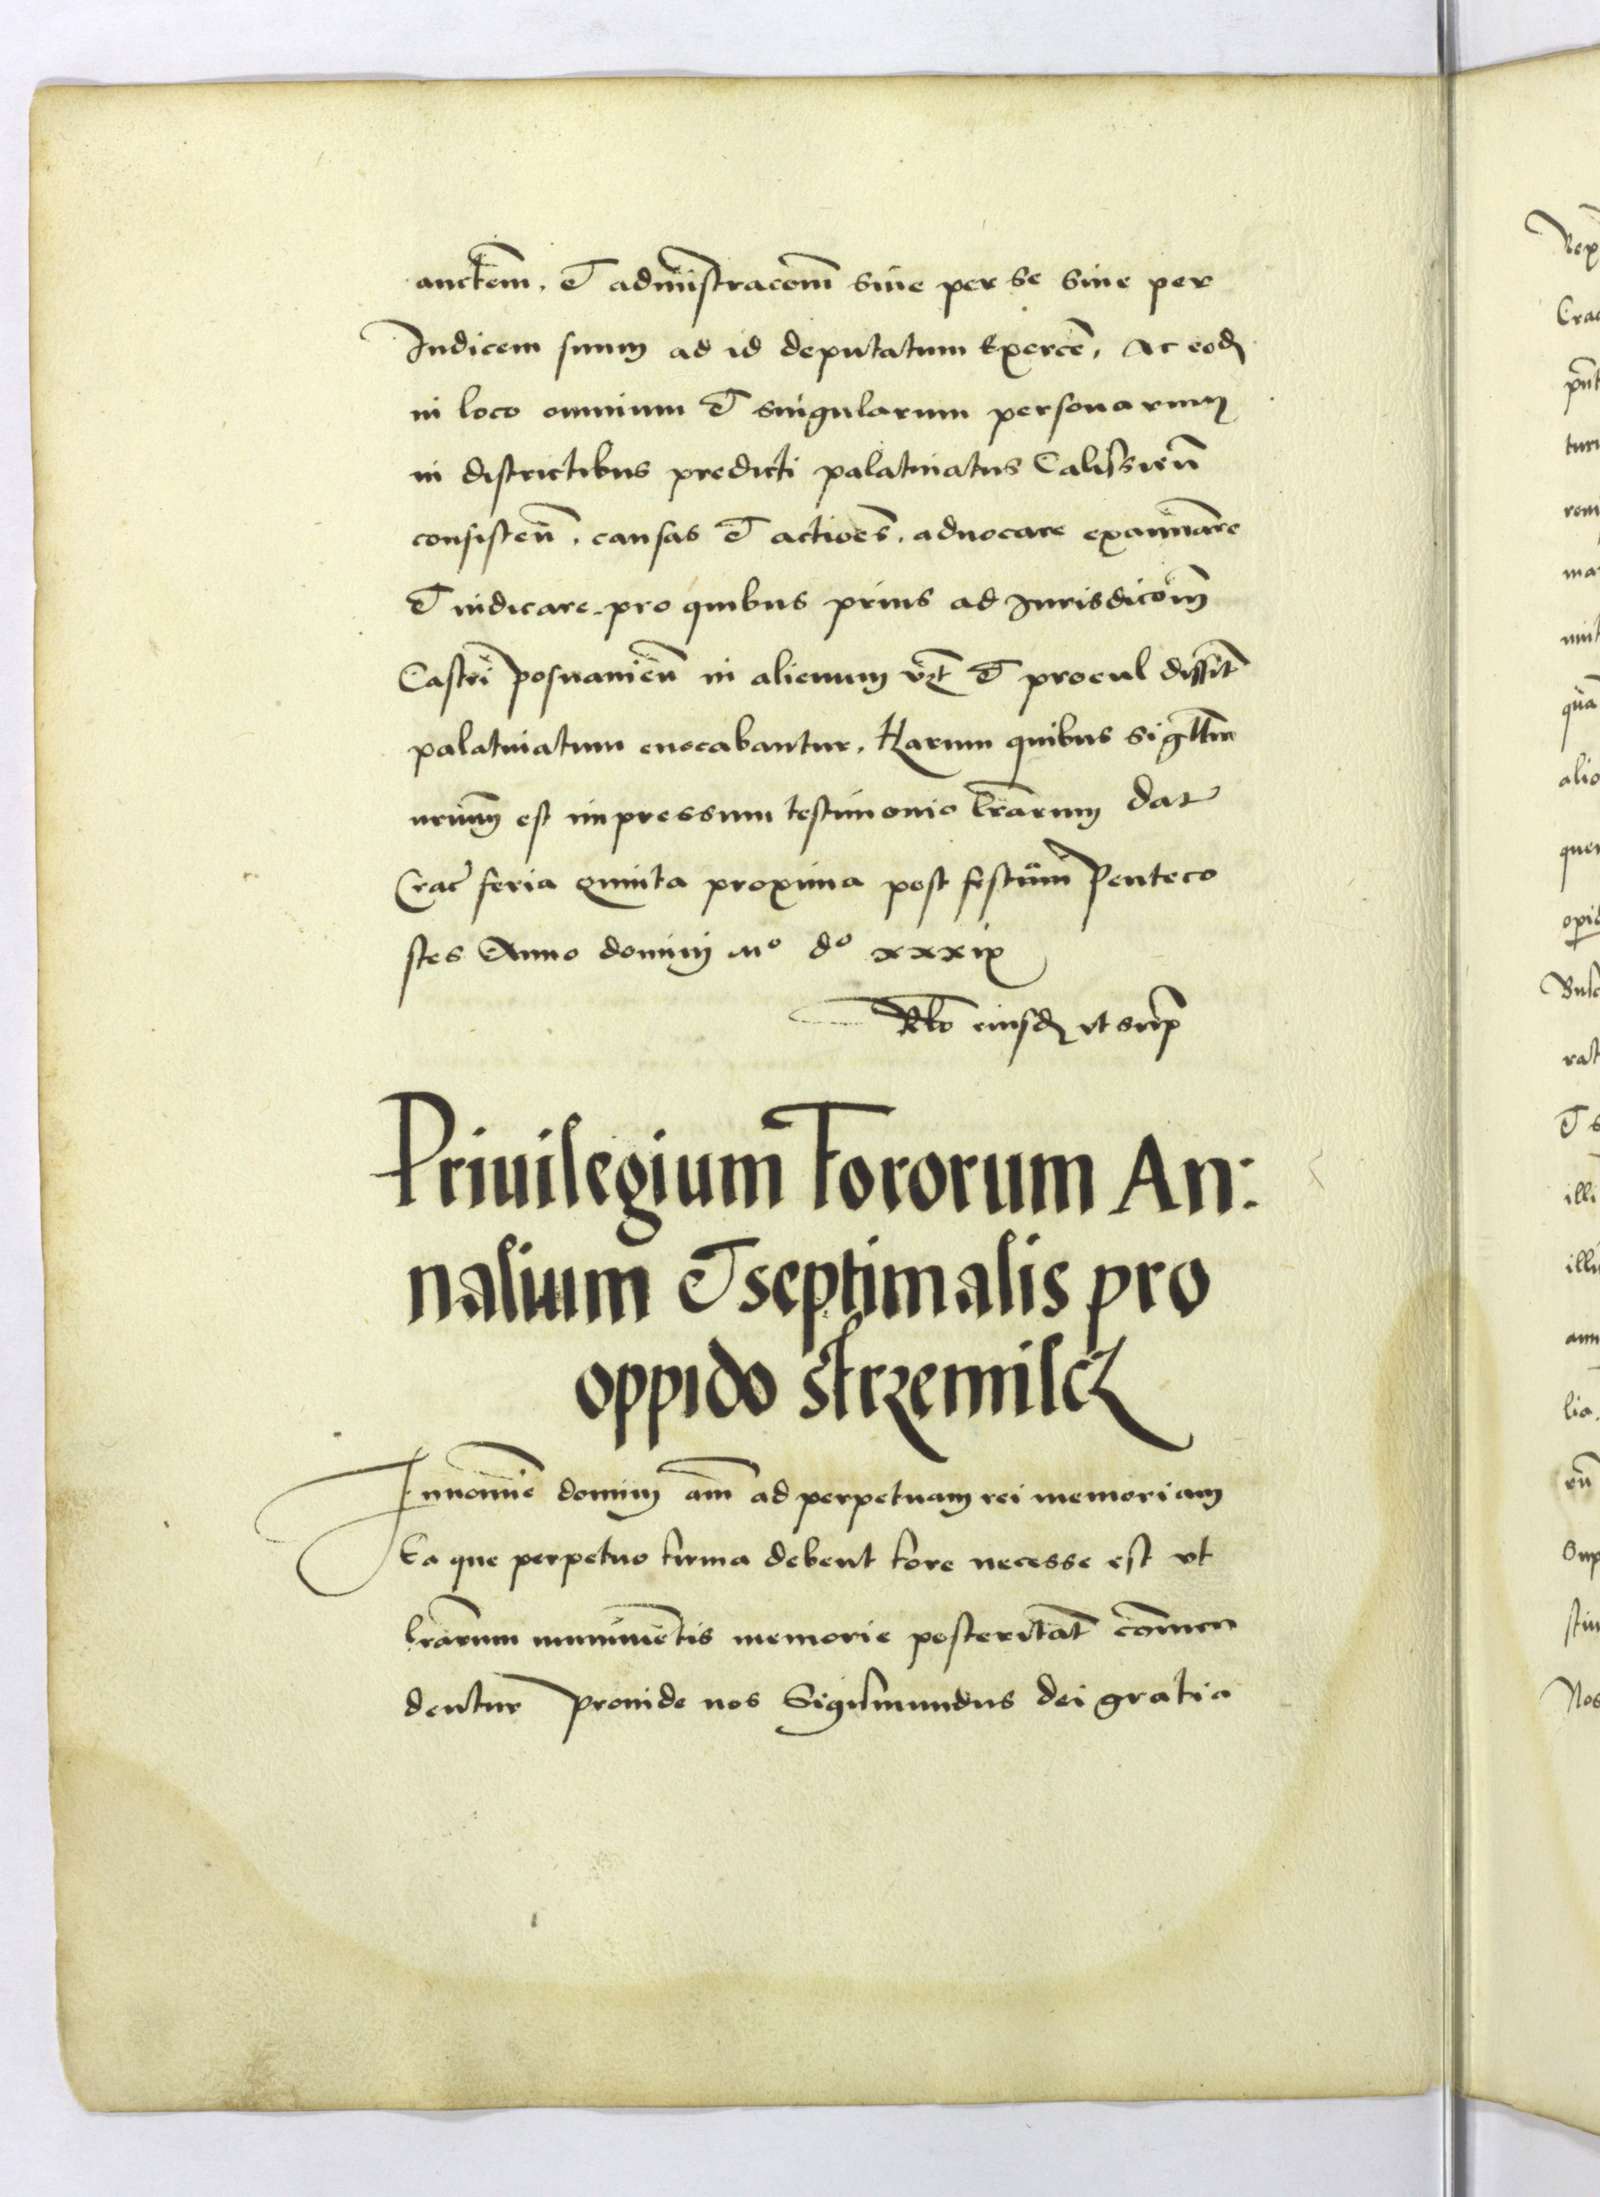 auctēm. et administracōm siue per se siue per
Iudicem suum ad id deputatum Exercē, Ac eod
in loco omnium et singularum personarum
in districtibus predicti palatinatus Calissień
consisteń. causas et actioēs. aduocare examinare
et iudicare. pro quibus prius ad Iurisdicōm
Castri Posnanień in alienum et procul dissit
palatinatum euocabantur. Harum quibus sigillm
nrum est impressum testimonio lrarum Dat
Crac feria Quinta proxima post festum Penteco
stes Anno domini Mo do xxxix
Rlo eiusd vt supr
Priuilegium fororum An:
nalium et septimalis pro
oppido strzemilcz
In nomie domini am ad perpetuam rei memoriam
Ea que perpetuo firma debent fore necesse est vt
lrarum munimentis memorie posteritat comen
dentur Proinde nos Sigismundus dei gratia